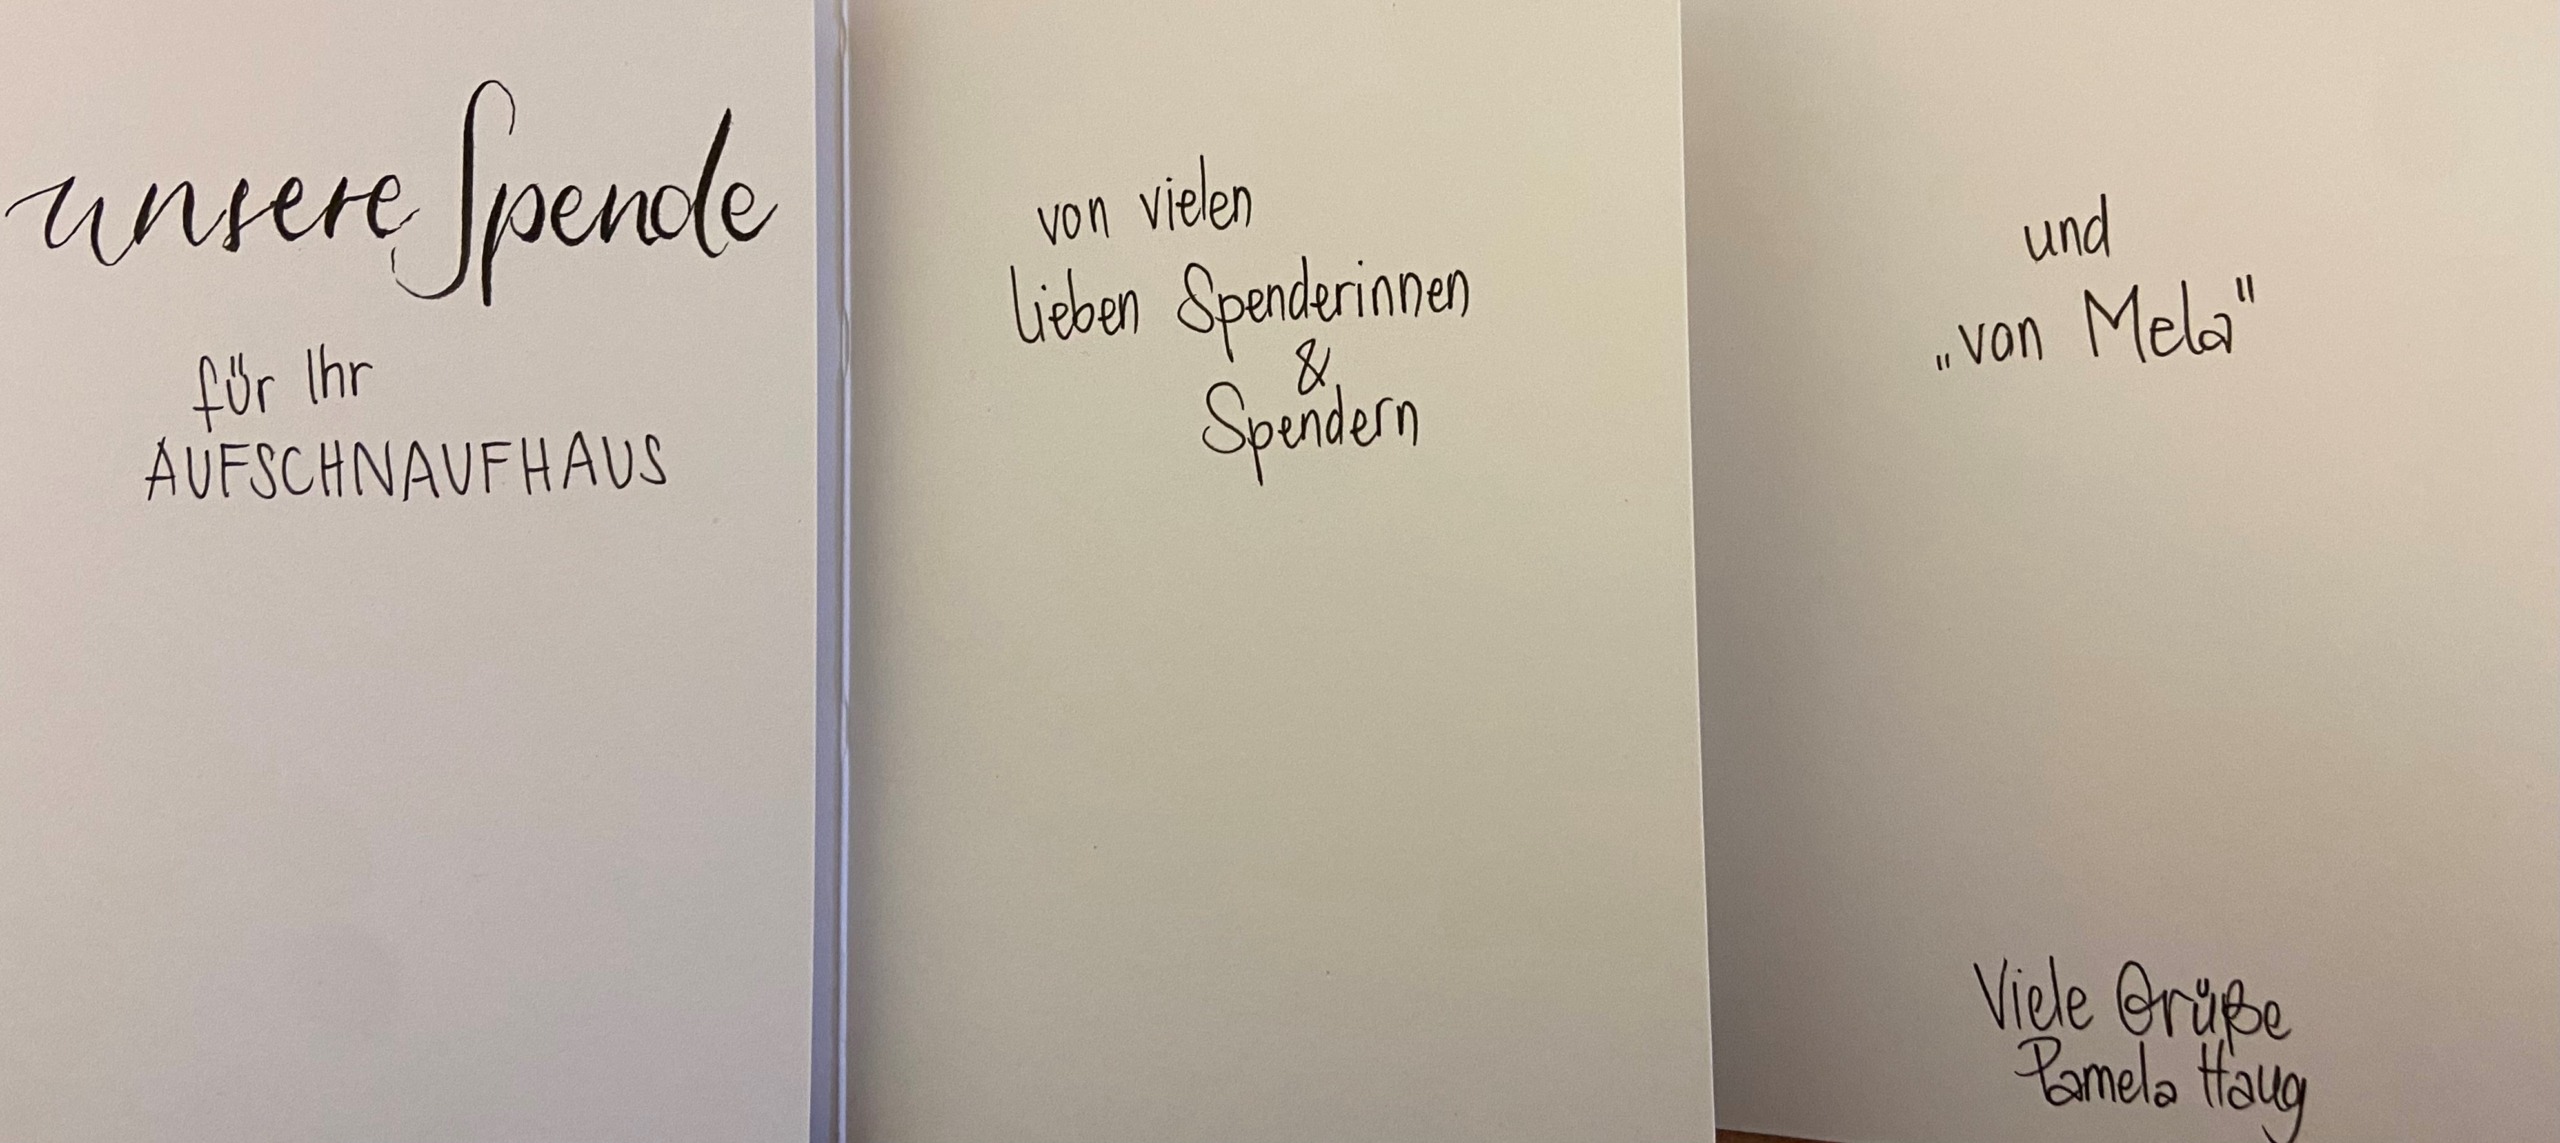 unsere Spende
für Ihr
AUFSCHNAUFHAUS
von vielen
lieben Spenderinnen
&
Spendern
und
„von Mela"
Viele Grüße
Pamela Haug